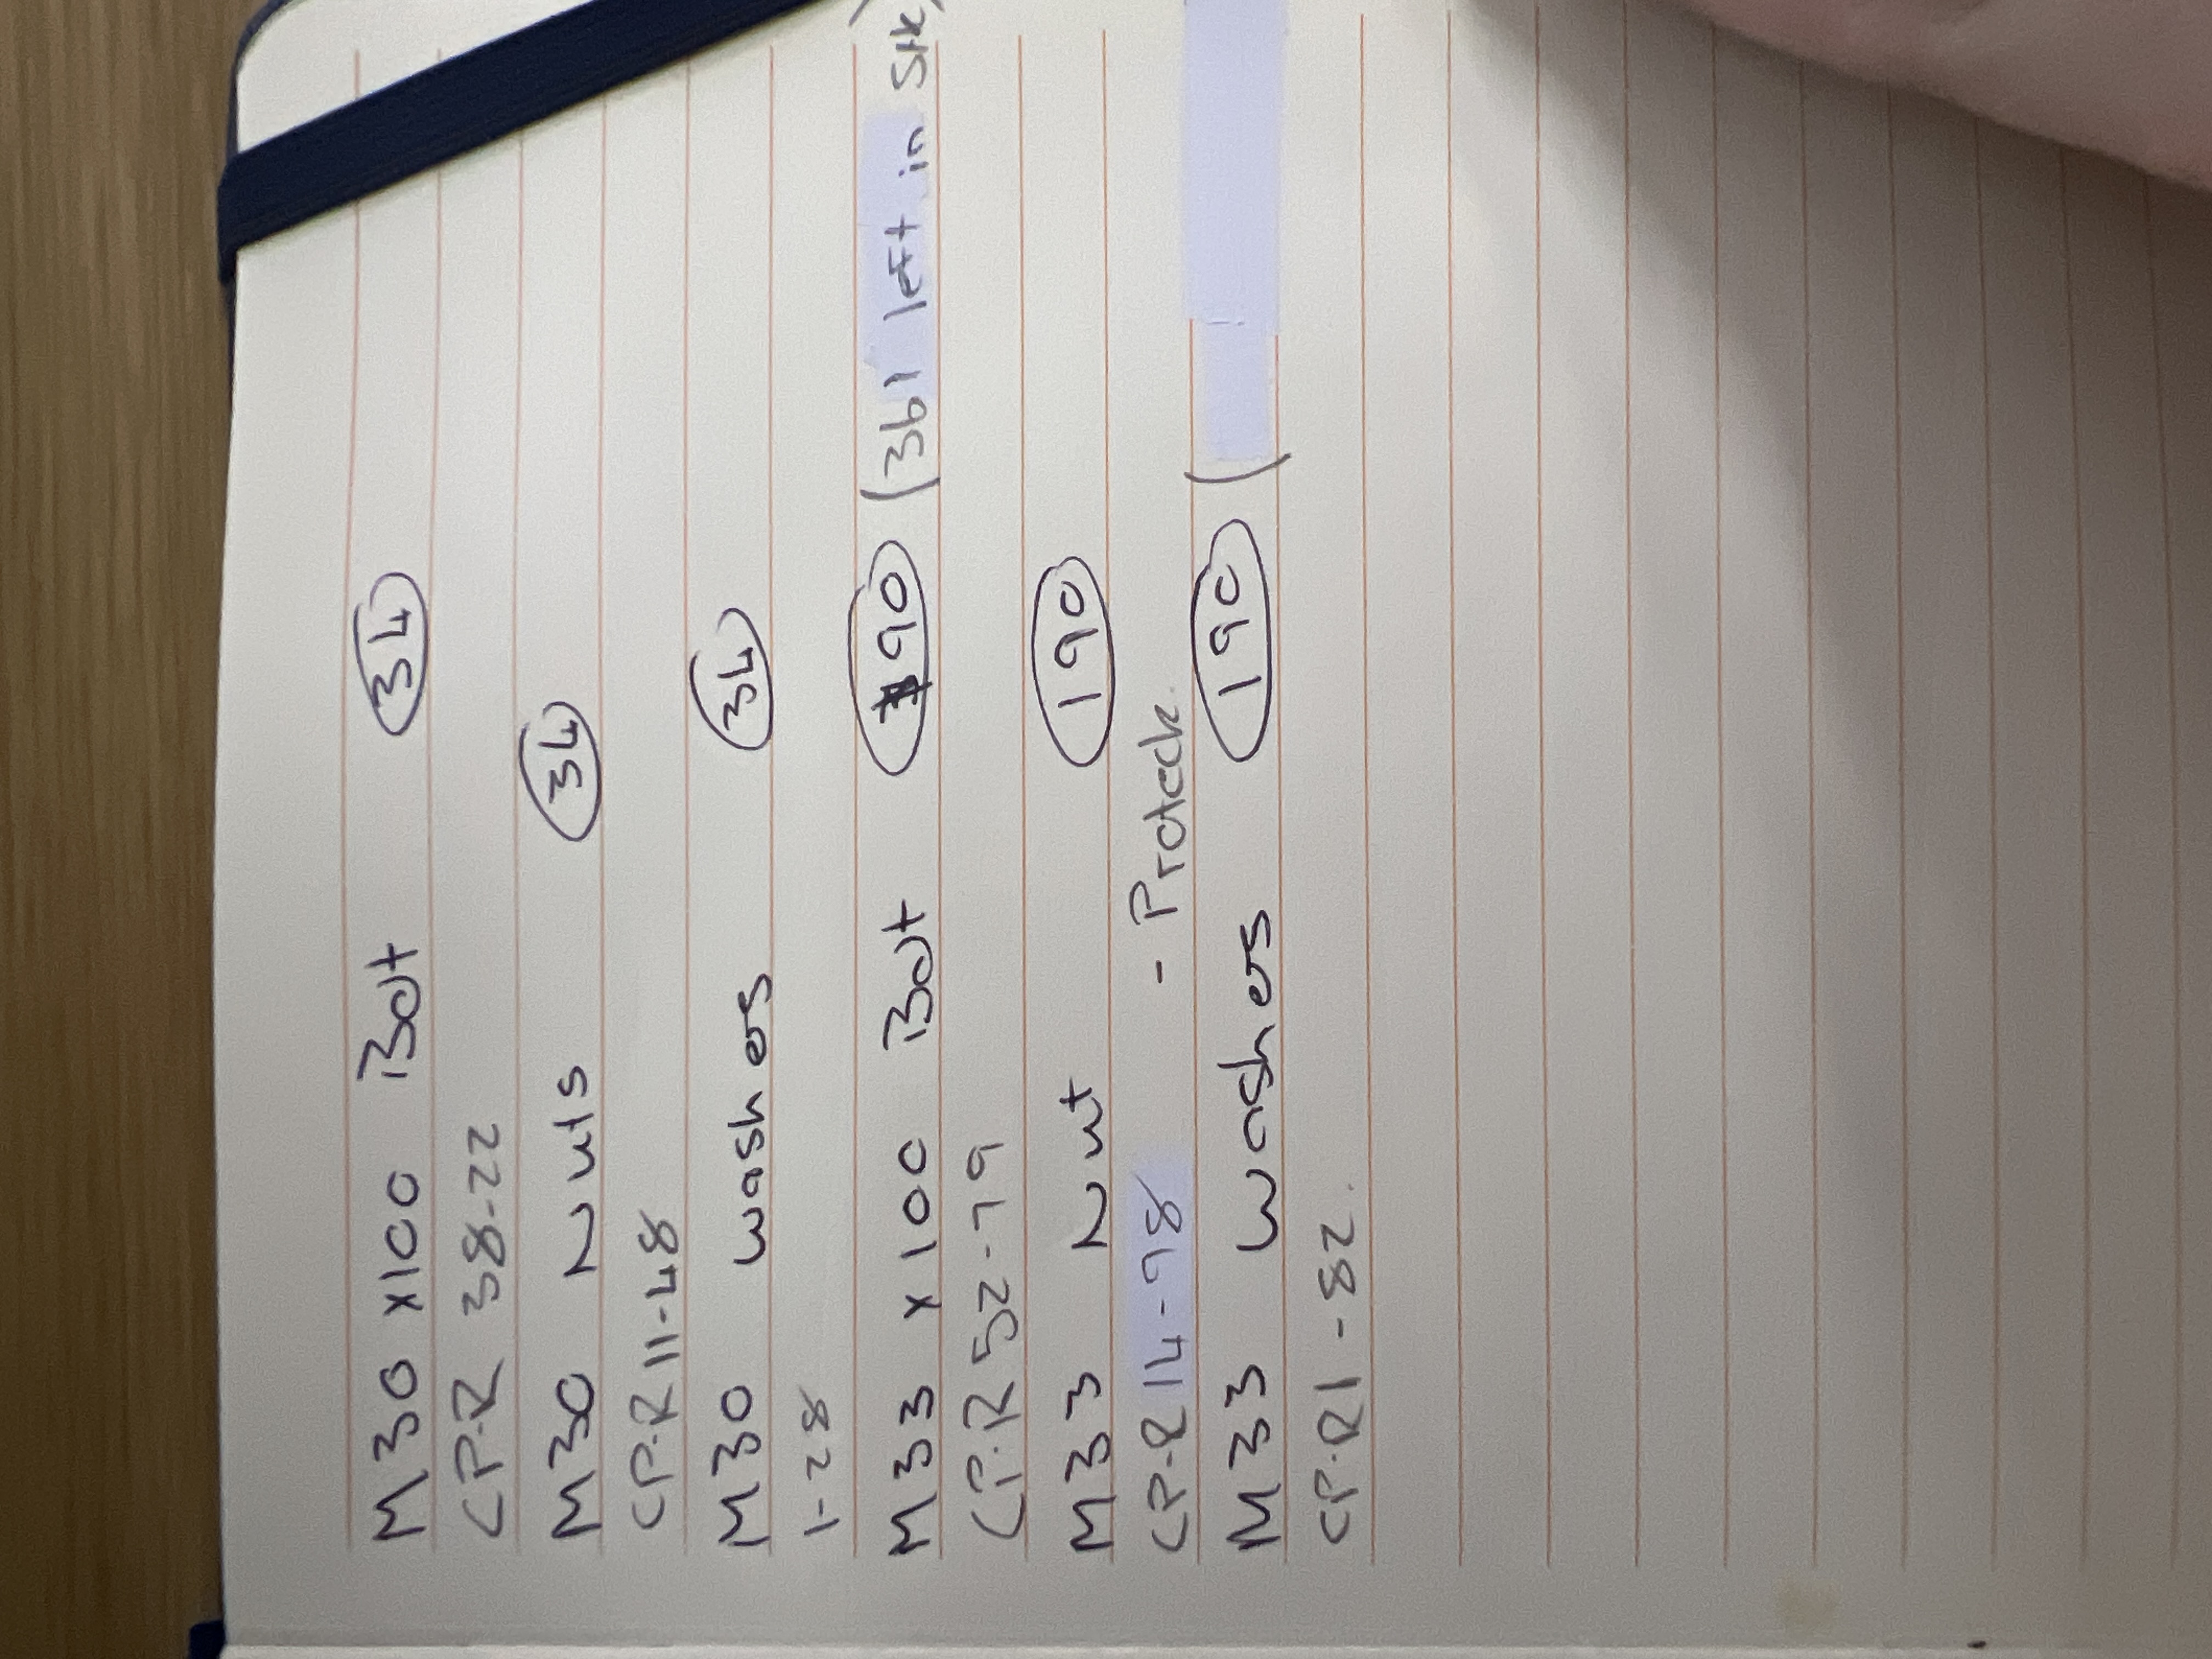 M30 x100 Bolt 34
CP-R 38-22
M30 Nuts 34
CP-R 11-48
M30 washers 34
1-28
M33 x100 Bolt 190 (361 left in Stk)
CP-R 52-79
M33 Nut 190
CP-R 14-98 - Proteck.
M33 washers 190 (
CP-R1-82.